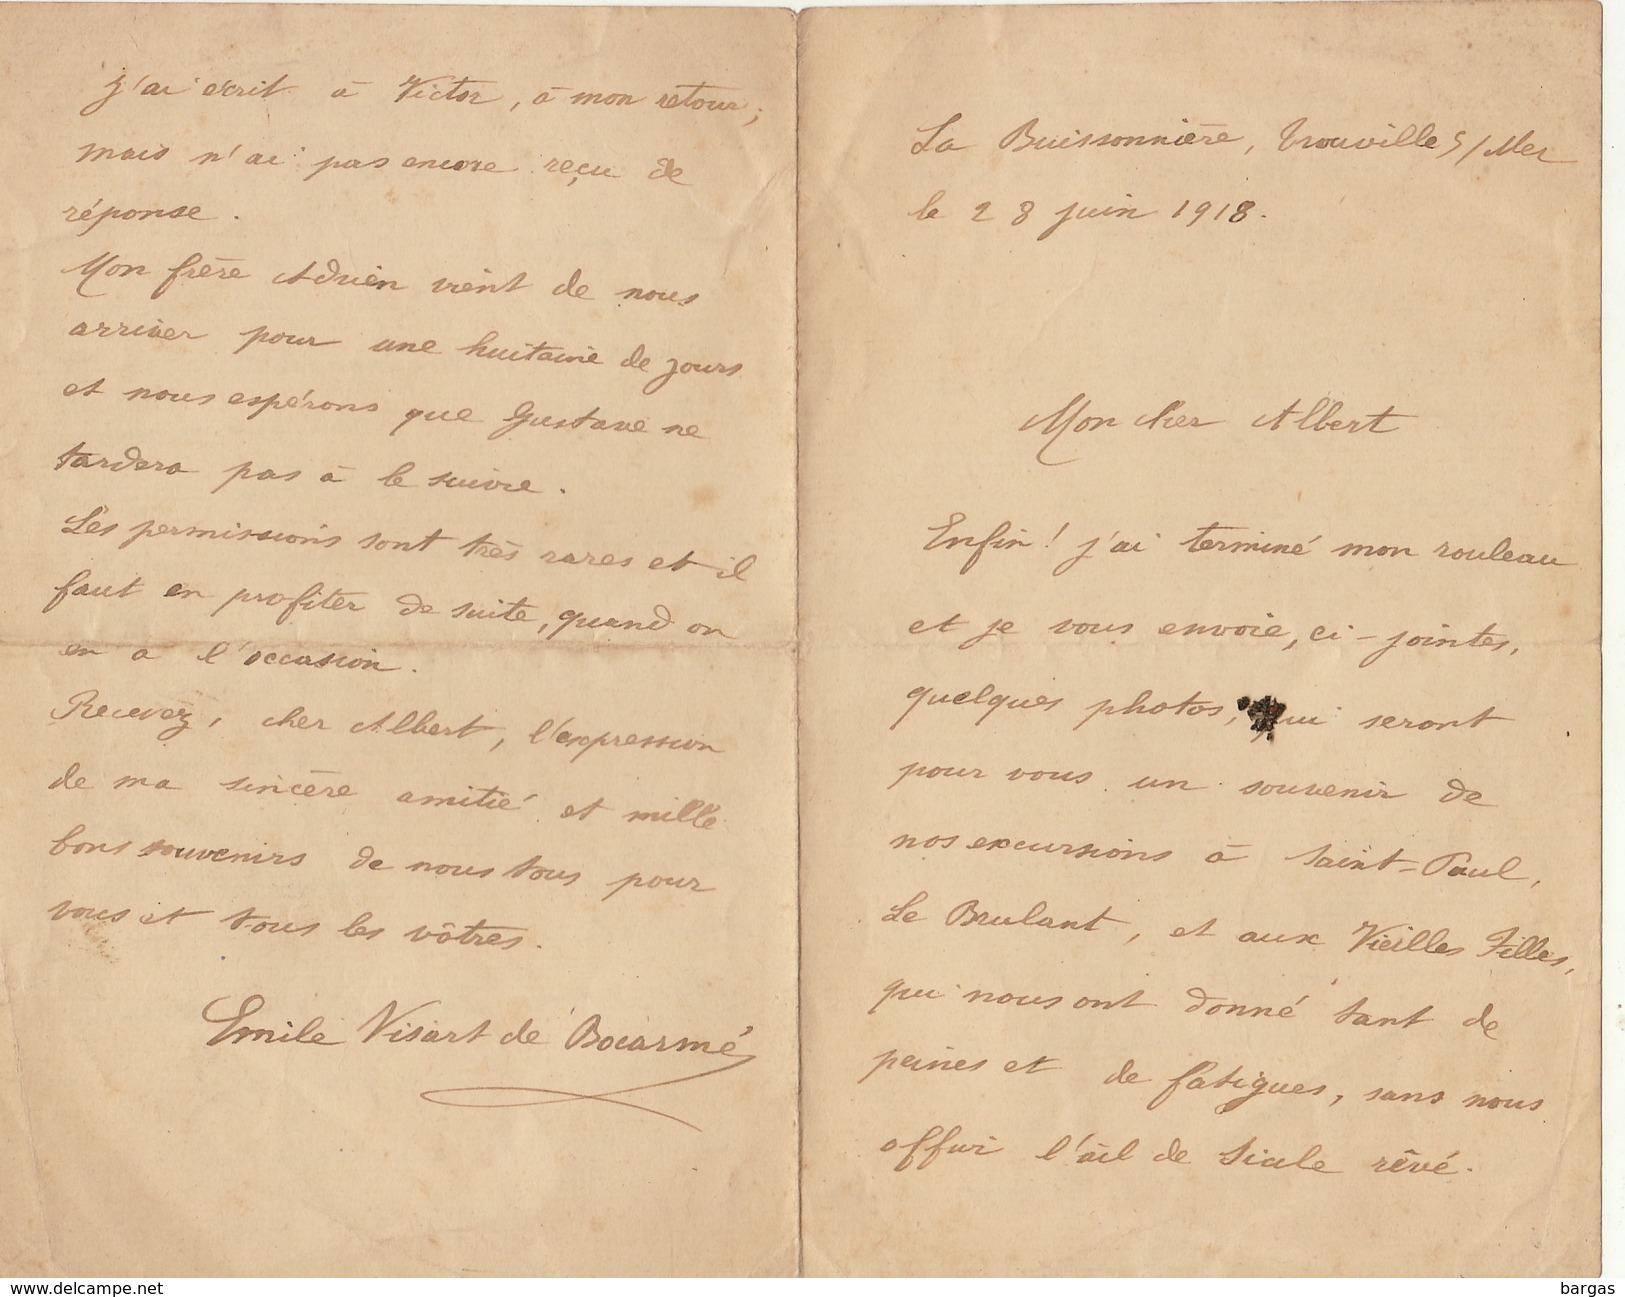 La Buissonnière, Trouville s/Mer
le 28 juin 1918.
Mon cher Albert
Enfin! j'ai terminé mon rouleau
et je vous envoie, ci-jointes,
quelques photos, qui seront
pour vous un souvenir de
nos excursions à Saint-Paul,
Le Brulant, et aux Vieilles Filles,
qui nous ont donné tant de
peines et de fatigues, sans nous
offrir l'œil de rêvé.
j'ai écrit à Victor, à mon retour;
mais n'ai pas encore reçu de
réponse.
Mon frère Adrien vient de nous
arriver pour une huitaine de jours
et nous espérons que Gustave ne
tardera pas à le suivre.
Les permissions sont très rares et il
faut en profiter de suite, quand on
en a l'occasion.
Recevez, cher Albert, l'expression
de ma sincère amitié et mille
bons souvenirs de nous tous pour
vous et tous les vôtres.
Emile Visart de Bocarmé
bargas